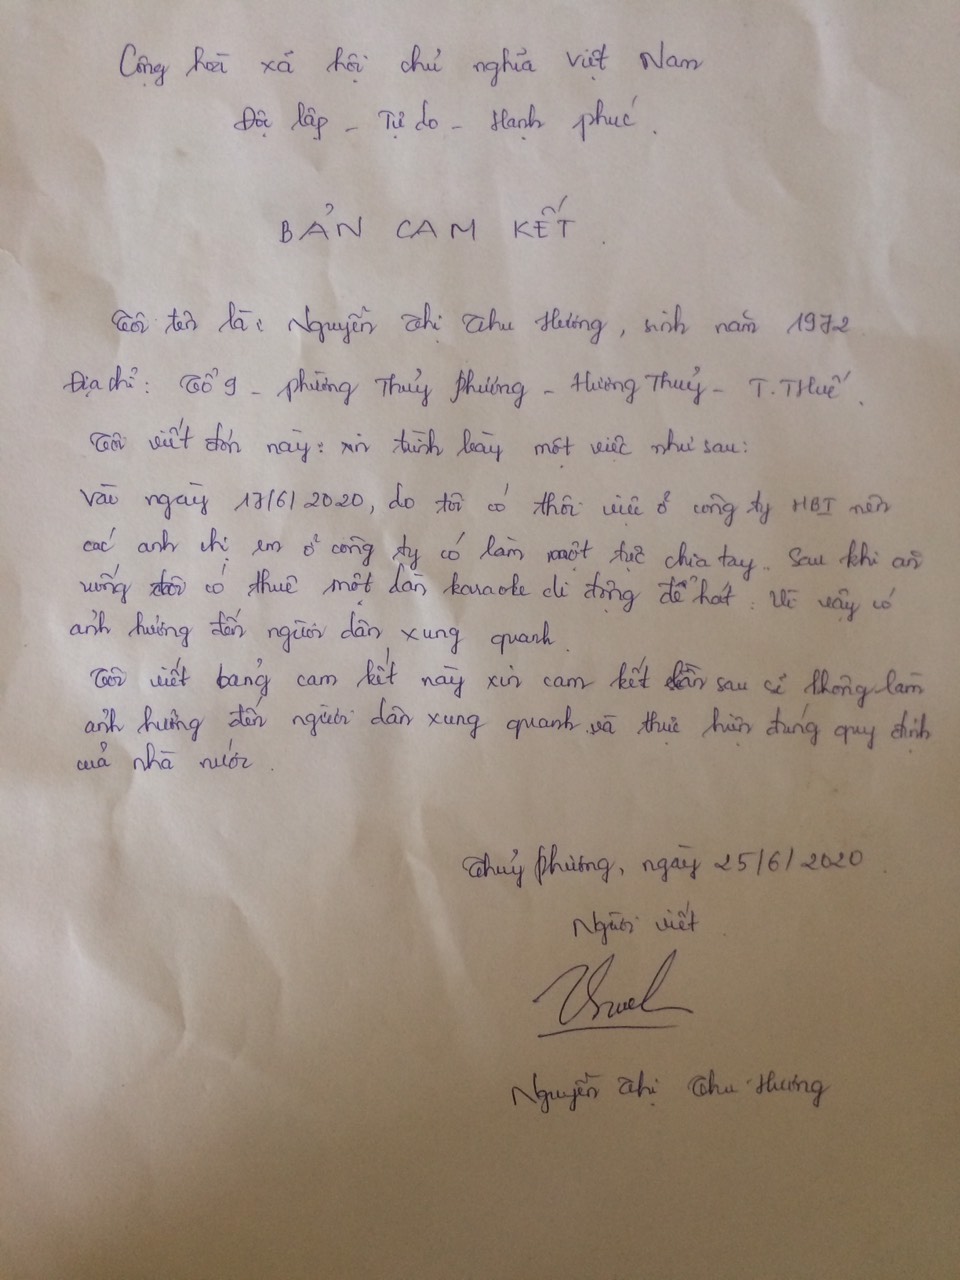 Cộng hòa xã hội chủ nghĩa việt Nam
Độc lập - Tự do - Hạnh phúc.
BẢN CAM KẾT.
Tôi tên là: Nguyễn Thị Thu Hương, sinh năm 1972
Địa chỉ: Tổ 9 - phường Thủy phương - Hương Thuỷ - T.T Huế.
Tôi viết đơn này: xin trình bày một việc như sau:
Vào ngày 17/6/2020, do tôi có thôi việc ở công ty HBI nên
các anh chị em ở công ty có làm một tiệc chia tay. Sau khi ăn
uống tôi có thuê một dàn karaoke di động để hát. Vì vậy có
ảnh hưởng đến người dân xung quanh.
Tôi viết bảng cam kết này xin cam kết lần sau sẽ không làm
ảnh hưởng đến người dân xung quanh và thực hiện đúng quy định
của nhà nước.
Thuỷ phương, ngày 25/6/2020
Người viết
Nguyễn Thị Thu Hương